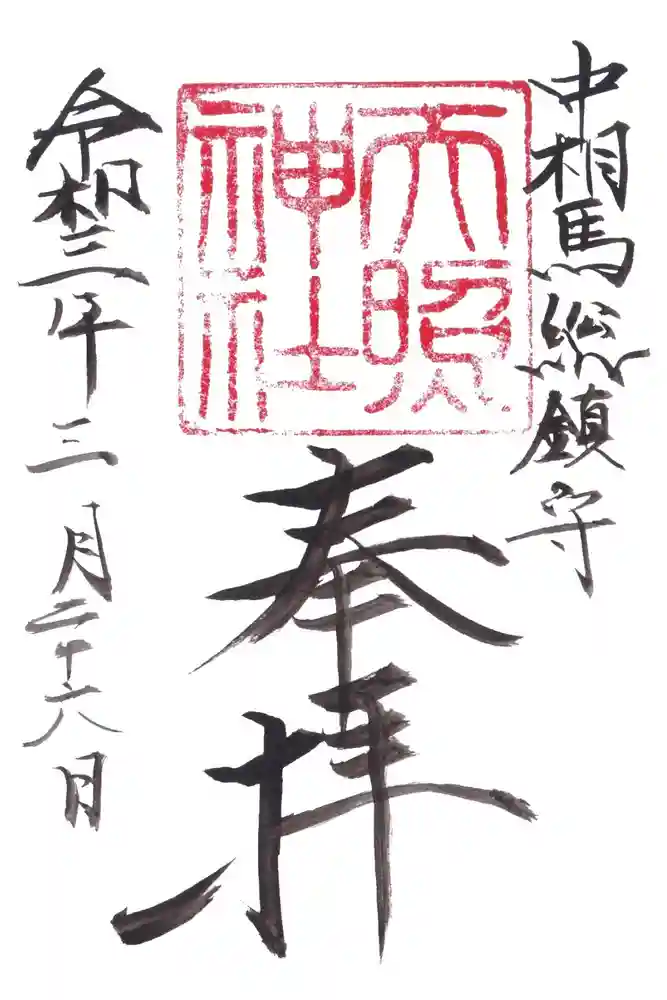 中相馬総鎮守
天照神社
奉拝
令和三年三月二十六日